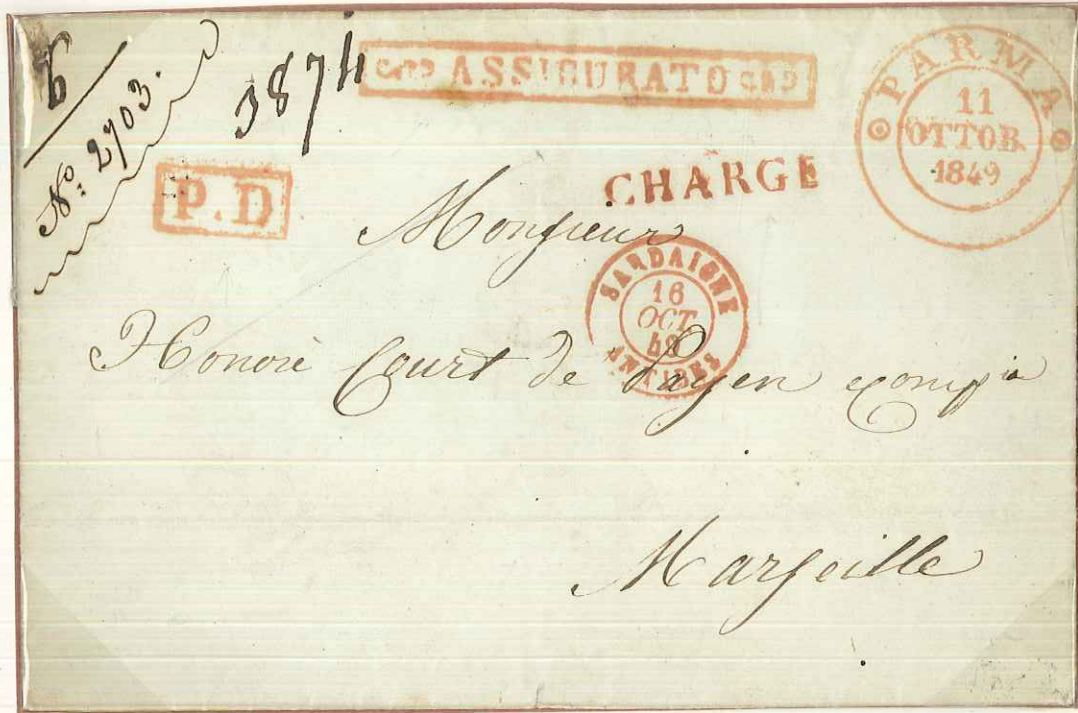 6
Nº: 2703.
3874
ASSICURATO
PARMA
11
OTTOB.
1849
P.D
CHARGE
Monsieur
SARDAIGNE
16
OCT.
49
ANTIBES
Honoré Court de Payen comp ia
Marseille